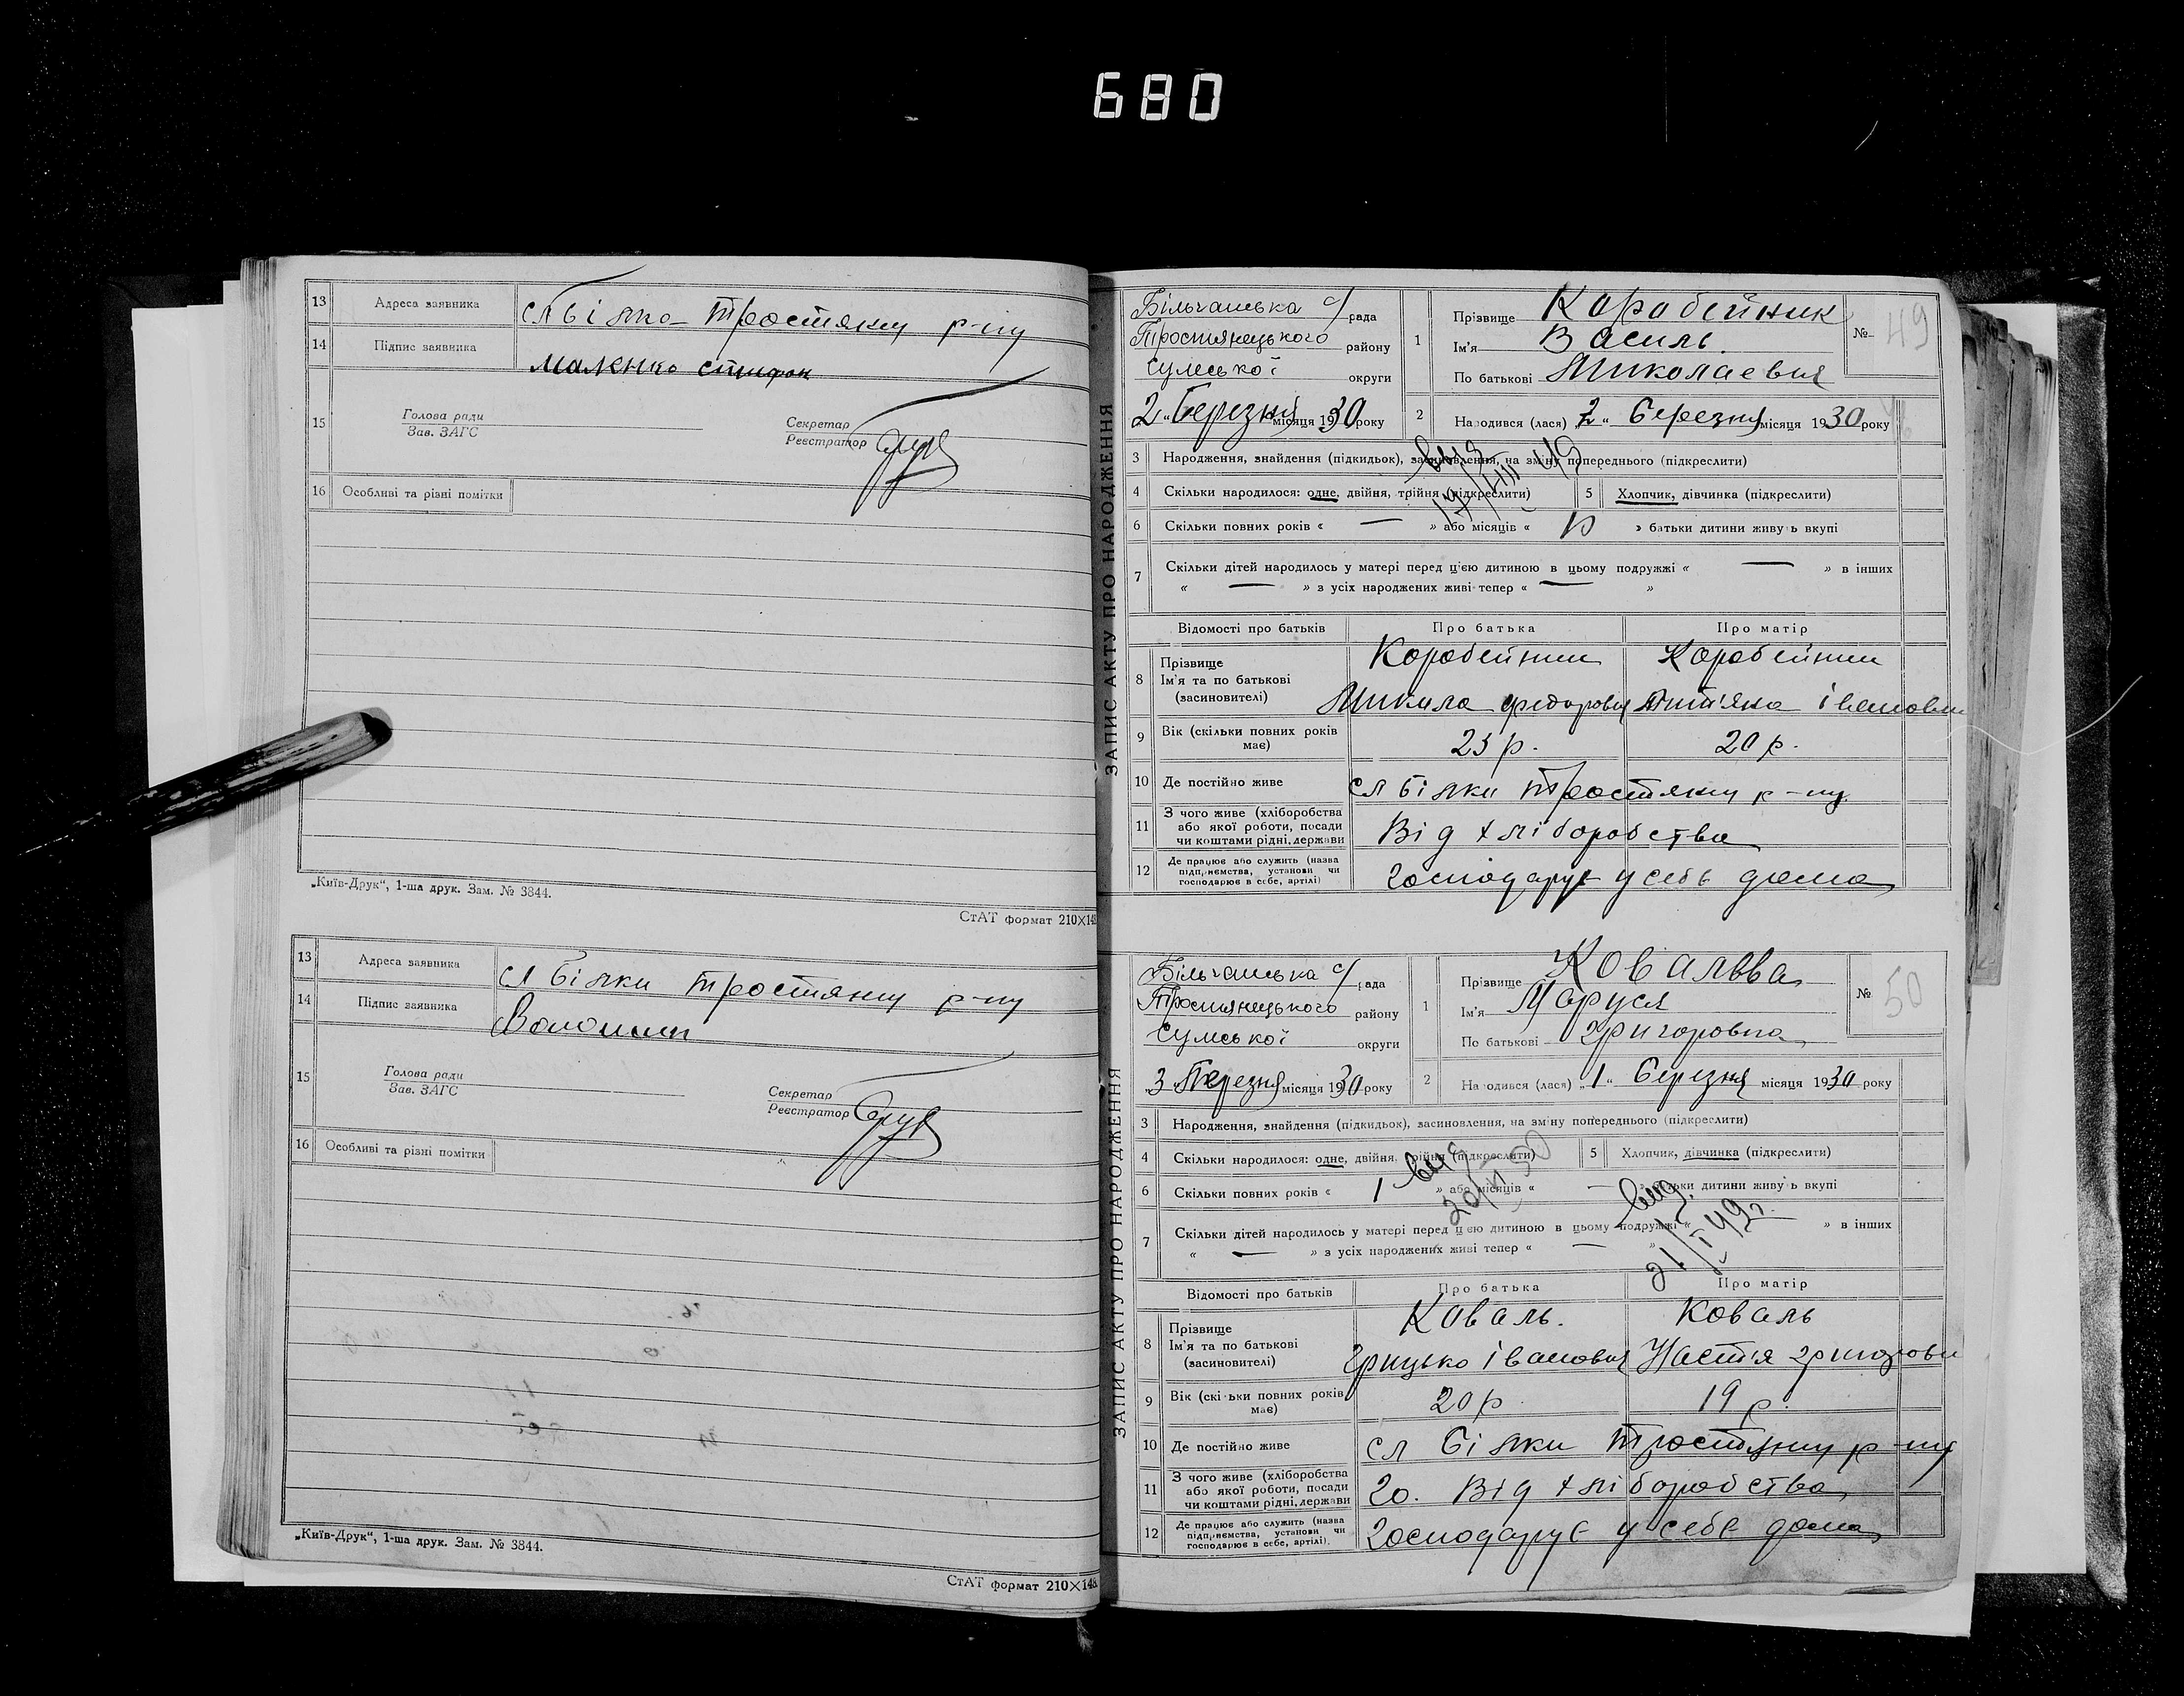 680
13 Адреса заявника сл Білка Тростянц р-ну
14 Підпис заявника Маленко Стифан
15 Голова ради Секретар
Зав. ЗАГС Реєстратор
16 Особливі та різні помітки
„Київ-Друк“, 1-ша друк. Зам. № 3844.
СтАТ формат 210×148
13 Адреса заявника сл Білки Тростянц р-ну
14 Підпис заявника Волошин
15 Голова ради Секретар
Зав. ЗАГС Реєстратор
16 Особливі та різні помітки
„Київ-Друк“, 1-ша друк. Зам. № 3844.
СтАТ формат 210×148
ЗАПИС АКТУ ПРО НАРОДЖЕННЯ
Більчанська с/рада 1 Прізвище Коробейник № 49
Тростянецького району Ім'я Василь
Сумської округи По батькові Миколаевич
2 „Березня місяця 1930 року 2 Народився (лася) „2“ березня місяця 1930 року
3 Народження, знайдення (підкидьок), засиновлення, на зміну попереднього (підкреслити)
4 Скільки народилося: одне, двійня, трійня (підкреслити) 5 Хлопчик, дівчинка (підкреслити)
6 Скільки повних років « — » або місяців « 10 » батьки дитини живуть вкупі
7 Скільки дітей народилось у матері перед цією дитиною в цьому подружжі « — » в інших
« — » з усіх народжених живі тепер « — »
Відомості про батьків Про батька Про матір
8 Прізвище Коробейник Коробейник
Ім'я та по батькові Микола Федорович Івановна
(засиновителі)
9 Вік (скільки повних років має) 23 р. 20 р.
10 Де постійно живе сл Білки Тростянц р-ну
11 З чого живе (хліборобства
або якої роботи, посади Від хліборобства
чи коштами рідні, держави
12 Де працює або служить (назва
підприємства, установи чи Господарує у себе дома
господарює в себе, артілі)
ЗАПИС АКТУ ПРО НАРОДЖЕННЯ
Більчанська с/рада 1 Прізвище Ковальва № 50
Тростянецького району Ім'я Маруся
Сумської округи По батькові Григоровна
„3 Березня місяця 1930 року 2 Народився (лася) „1“ березня місяця 1930 року
3 Народження, знайдення (підкидьок), засиновлення, на зміну попереднього (підкреслити)
4 Скільки народилося: одне, двійня, трійня (підкреслити) 5 Хлопчик, дівчинка (підкреслити)
6 Скільки повних років « 1 » або місяців « — » батьки дитини живуть вкупі
7 Скільки дітей народилось у матері перед цією дитиною в цьому подружжі « — » в інших
« — » з усіх народжених живі тепер « — »
Відомості про батьків Про батька Про матір
8 Прізвище Коваль. Коваль
Ім'я та по батькові Грицько Іванович Настя Григоровн
(засиновителі)
9 Вік (скільки повних років має) 20 р 19 р.
10 Де постійно живе сл Білки Тростянц р-ну
11 З чого живе (хліборобства
або якої роботи, посади Від хліборобства
чи коштами рідні, держави
12 Де працює або служить (назва
підприємства, установи чи Господарує у себе дома
господарює в себе, артілі).